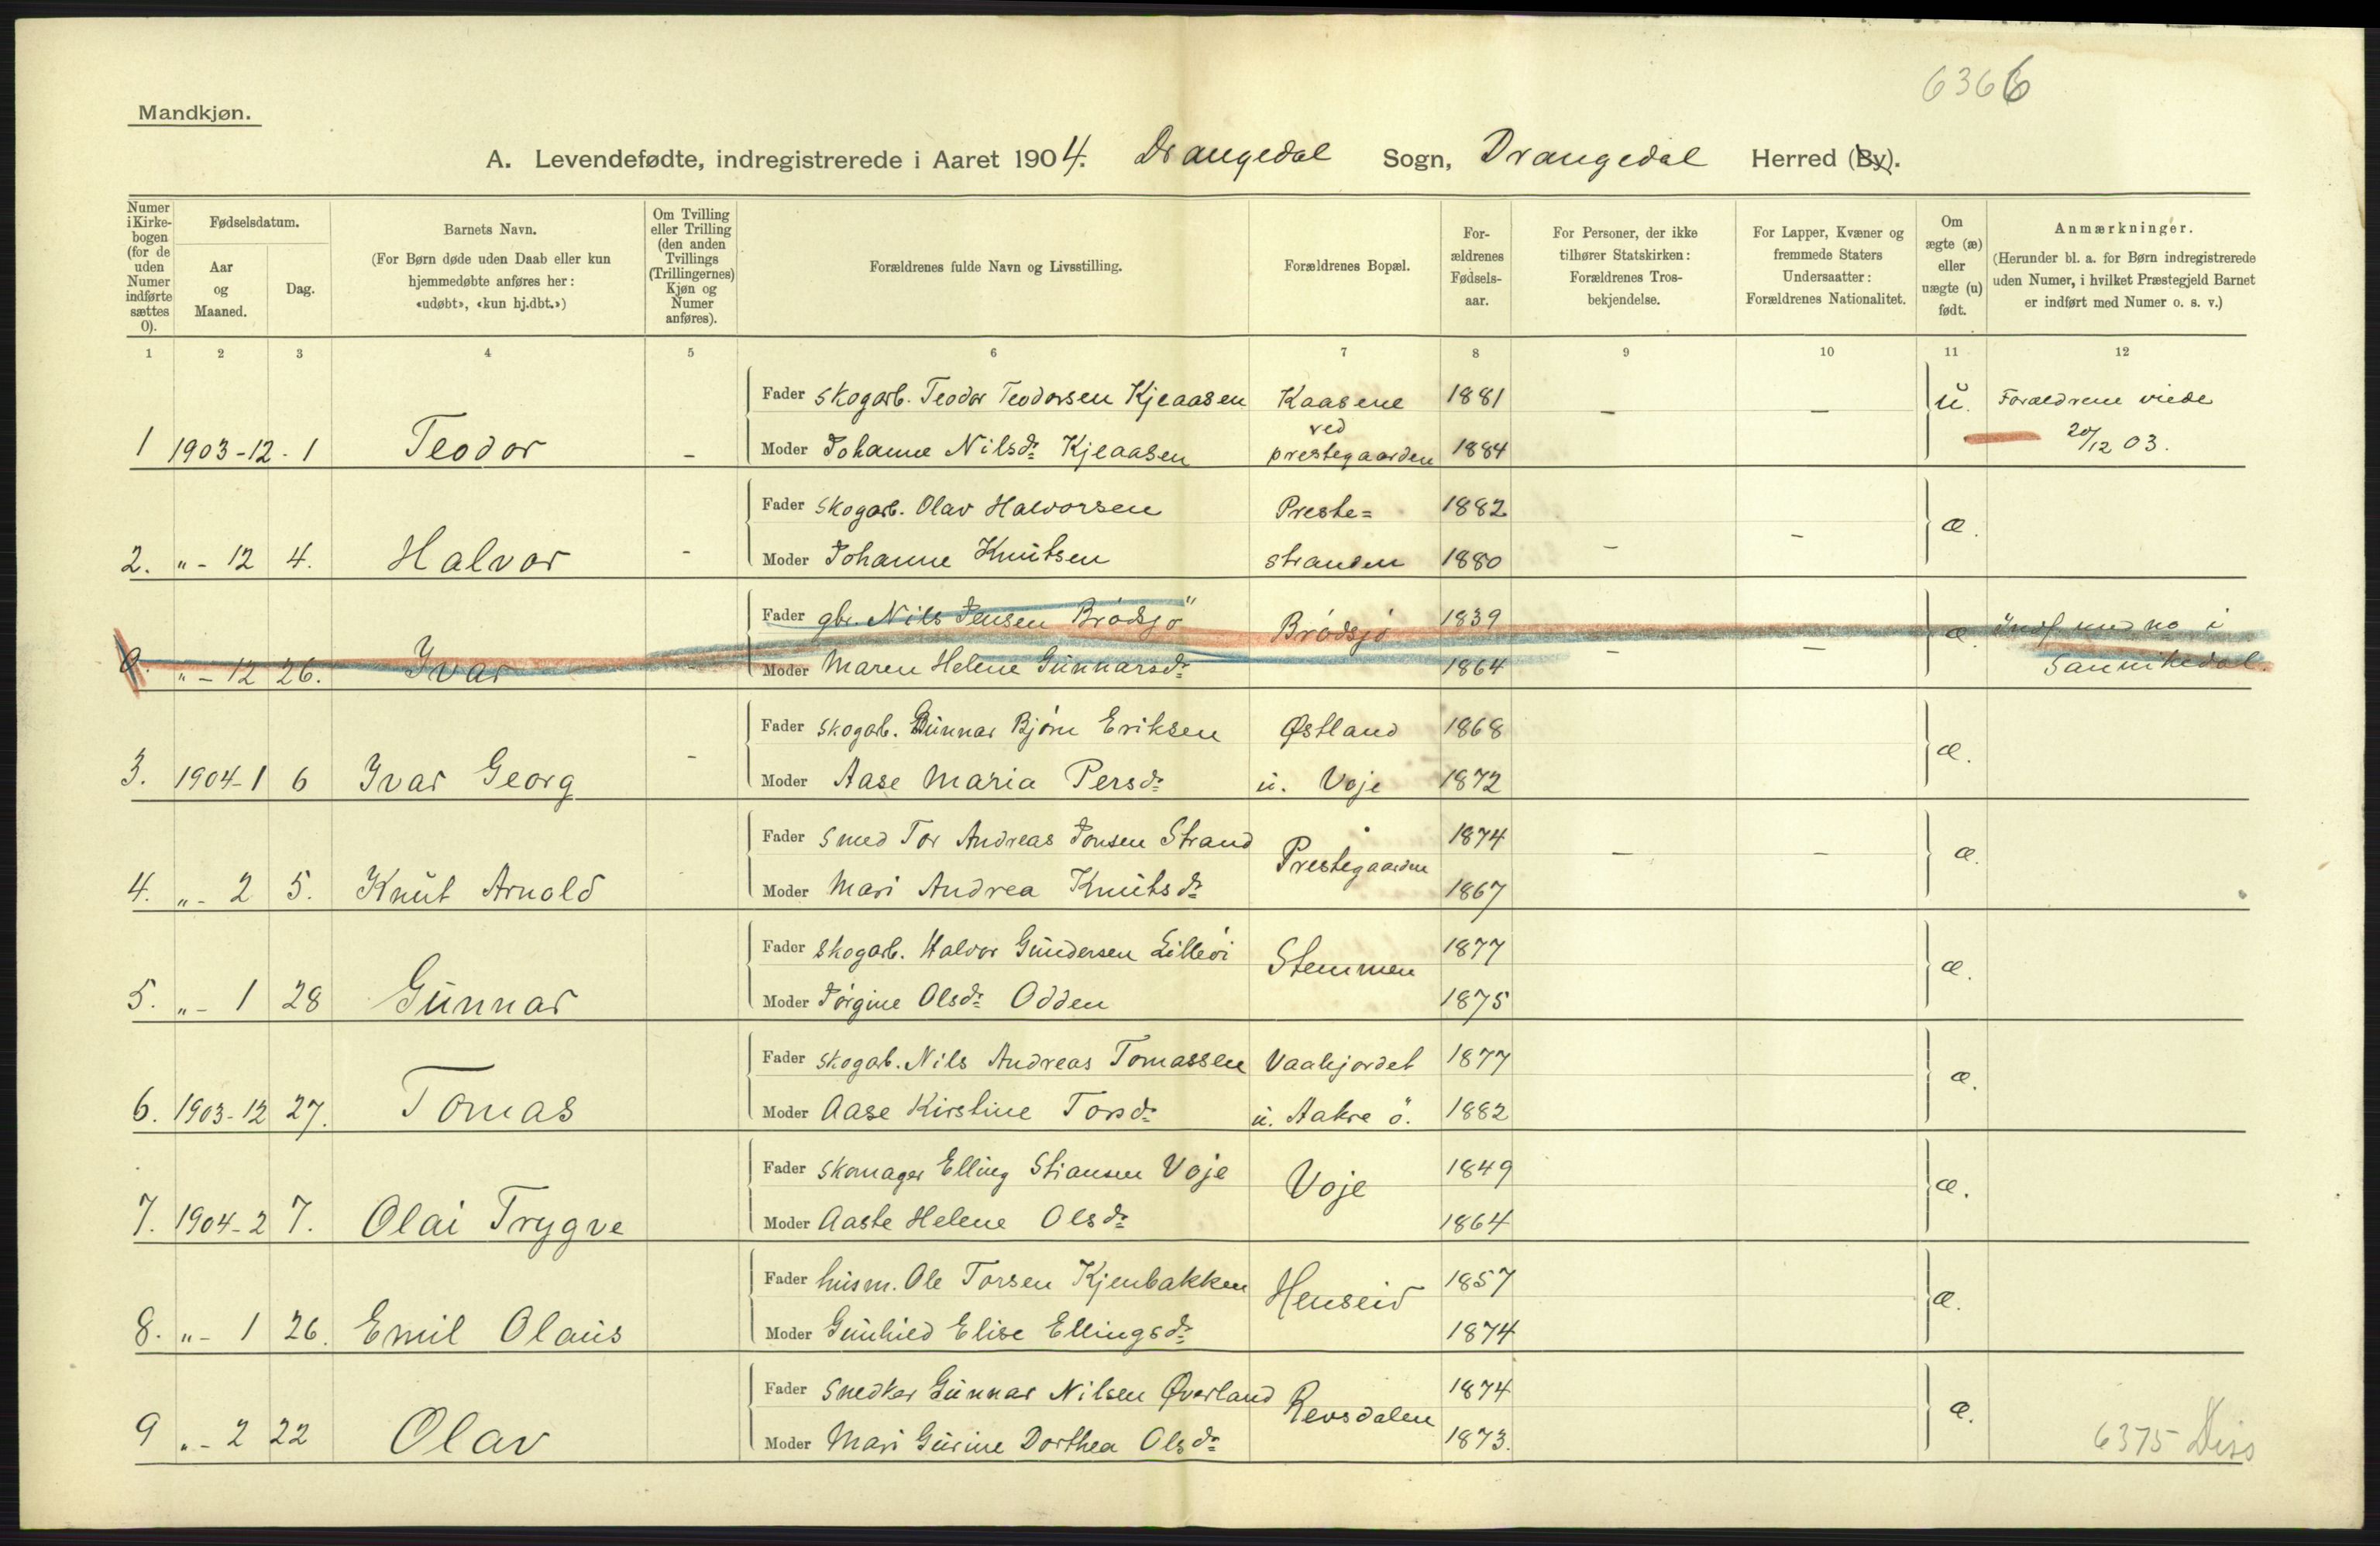 6366
Mandkjøn.
A. Levendefødte, indregistrerede i Aaret 1904. Drangedal Sogn, Drangedal Herred (By).
Numer i Kirkebogen (for de uden Numer indførte sættes 0).
Fødselsdatum.
Aar og Maaned.
Dag.
Barnets Navn.
(For Børn døde uden Daab eller kun hjemmedøbte anføres her: «udøbt», «kun hj.dbt.»)
Om Tvilling eller Trilling (den anden Tvillings (Trillingernes) Kjøn og Numer anføres).
Forældrenes fulde Navn og Livsstilling.
Forældrenes Bopæl.
Forældrenes Fødselsaar.
For Personer, der ikke tilhører Statskirken: Forældrenes Trosbekjendelse.
For Lapper, Kvæner og fremmede Staters Undersaatter: Forældrenes Nationalitet.
Om ægte (æ) eller uægte (u) født.
Anmærkninger.
(Herunder bl. a. for Børn indregistrerede uden Numer, i hvilket Præstegjeld Barnet er indført med Numer o. s. v.)
1 2 3 4 5 6 7 8 9 10 11 12
Fader Skogarb. Teodor Teodorsen Kjeaasen Kaasene 1881 – – u. Forældrene viede
1 1903-12-1 Teodor – Moder Johanne Nilsdr Kjeaasen ved prestegaarden 1884 20/12 03.
Fader Skogarb. Olav Halvorsen Preste= 1882 æ.
2. „- 12 4. Halvor - Moder Johanne Knutsen stranden 1880 – –
Fader gbr. Nils Jensen Brödsjö Brödsjö 1839 æ. Indf med no i
0. „- 12 26. Ivar - Moder Maren Helene Gunnarsdr 1864 – – Sannikedal.
Fader Skogarb. Gunnar Bjørn Eriksen Østland 1868 æ.
3. 1904-1 6 Ivar Georg - Moder Aase Maria Persdr u. Voje 1872
Fader Smed Tor Andreas Jonsen Strand Prestegaarden 1874 – – æ.
4. „- 2 5. Knut Arnold Moder Mari Andrea Knutsdr 1867
Fader Skogarb. Halvor Gundersen Lilleöi Stemmen 1877 æ.
5. „- 1 28 Gunnar Moder Jörgine Olsdr Odden 1875
Fader Skogarb. Nils Andreas Tomassen Vaahjordet 1877 æ.
6. 1903-12 27. Tomas Moder Aase Kirstine Torsdr u. Aakre ö. 1882
Fader Skomager Elling Stiansen Voje Voje 1849 æ.
7. 1904-2 7. Olai Trygve Moder Aaste Helene Olsdr 1864
Fader husm. Ole Torsen Kjenbakken Henseid 1857 æ.
8. „- 1 26. Emil Olaus Moder Gunhild Elise Ellingsdr 1874
Fader Snedker Gunnar Nilsen Øverland Revsdalen 1874 æ.
9 „- 2 22 Olav Moder Mari Gurine Dorthea Olsdr 1873.
6375